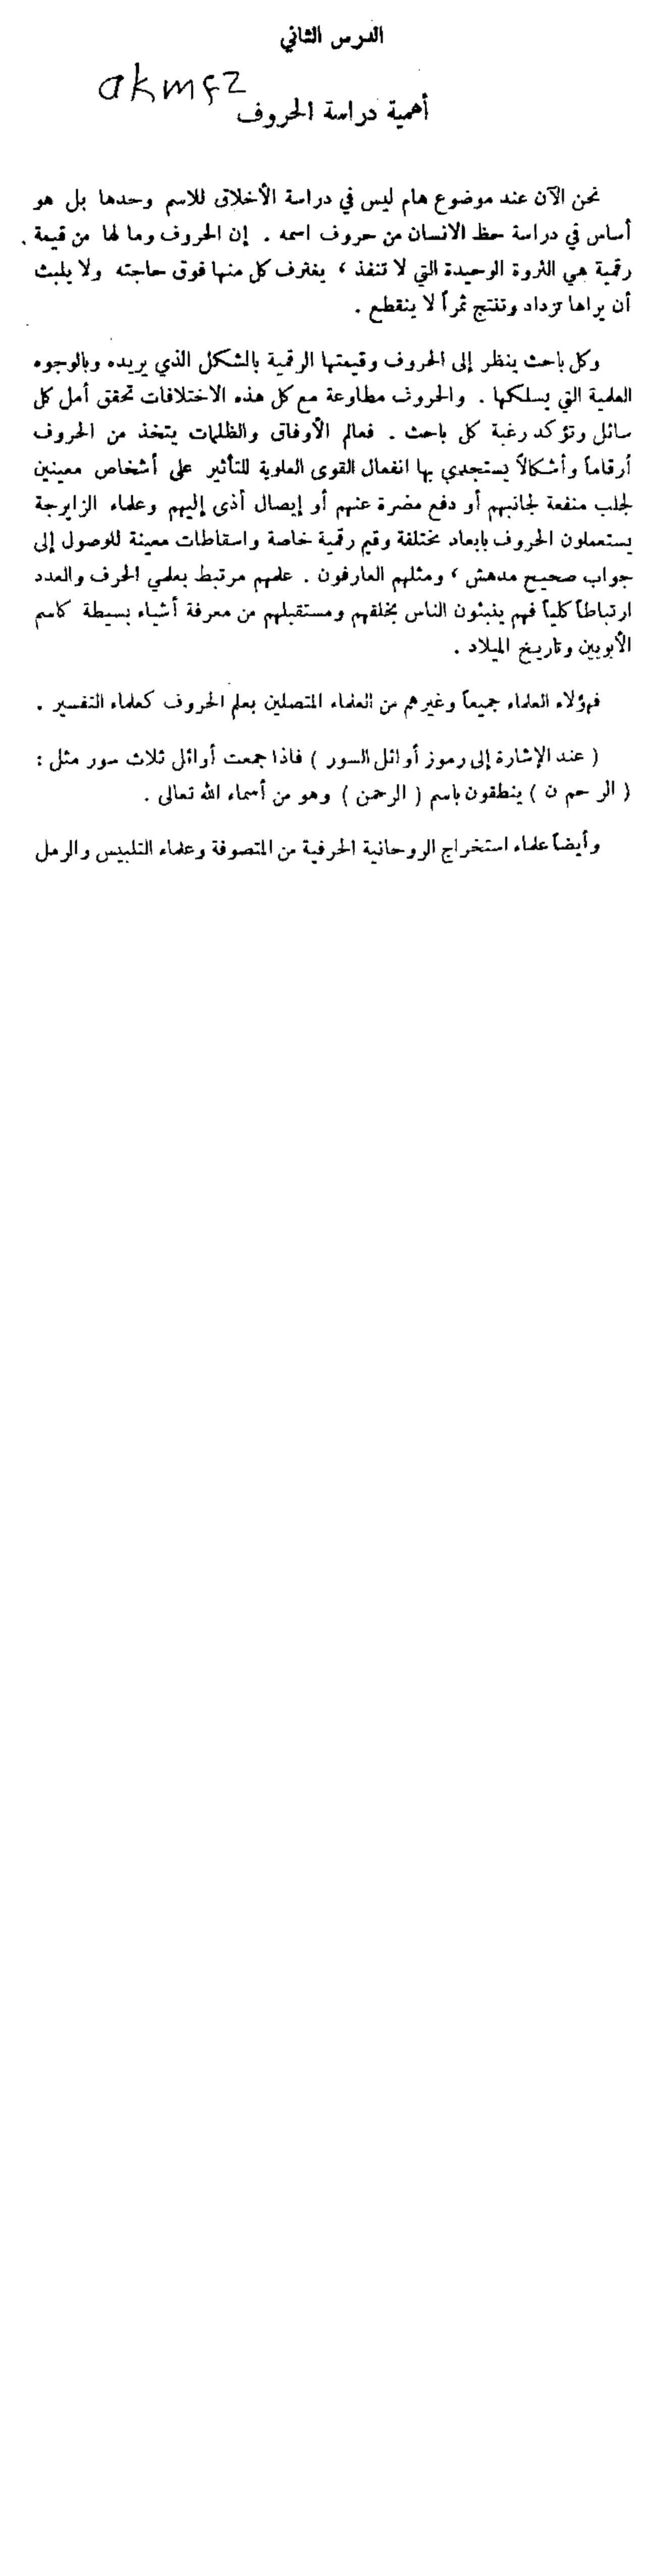 الدرس الثاني
akmçz
أهمية دراسة الحروف
نحن الآن عند موضوع هام ليس في دراسة الأخلاق للاسم وحدها بل هو
أساس في دراسة حظ الانسان من حروف اسمه . إن الحروف وما لها من قيمة
رقمية هي الثروة الوحيدة التي لا تنفذ ، يغترف كل منها فوق حاجته ولا يلبث
أن يراها تزداد وتنتج ثمراً لا ينقطع .
وكل باحث ينظر إلى الحروف وقيمتها الرقمية بالشكل الذي يريده وبالوجوه
العلمية التي يسلكها . والحروف مطاوعة مع كل هذه الاختلافات تحقق أمل كل
سائل وتؤكد رغبة كل باحث . فعالم الأوفاق والطلمات يتخذ من الحروف
أرقاماً وأشكالاً يستجدي بها انفعال القوى العلوية للتأثير على أشخاص معينين
لجلب منفعة لجانبهم أو دفع مضرة عنهم أو إيصال أذى إليهم وعلماء الزايرجة
يستعملون الحروف بابعاد مختلفة وقيم رقمية خاصة واسقاطات معينة للوصول إلى
جواب صحيح مدهش ، ومثلهم العارفون . علمهم مرتبط بعلمي الحرف والعدد
ارتباطاً كلياً فهم ينبئون الناس بخلقهم ومستقبلهم من معرفة أشياء بسيطة كاسم
الأبويين وتاريخ الميلاد .
فهؤلاء العلماء جميعاً وغيرهم من العلماء المتصلين بعلم الحروف كعلماء التفسير .
( عند الإشارة إلى رموز أوائل السور ) فاذا جمعت أوائل ثلاث سور مثل :
( الر حم ن ) ينطقون باسم ( الرحمن ) وهو من أسماء الله تعالى .
وأيضاً علماء استخراج الروحانية الحرفية من المتصوفة وعلماء التلبيس والرمل